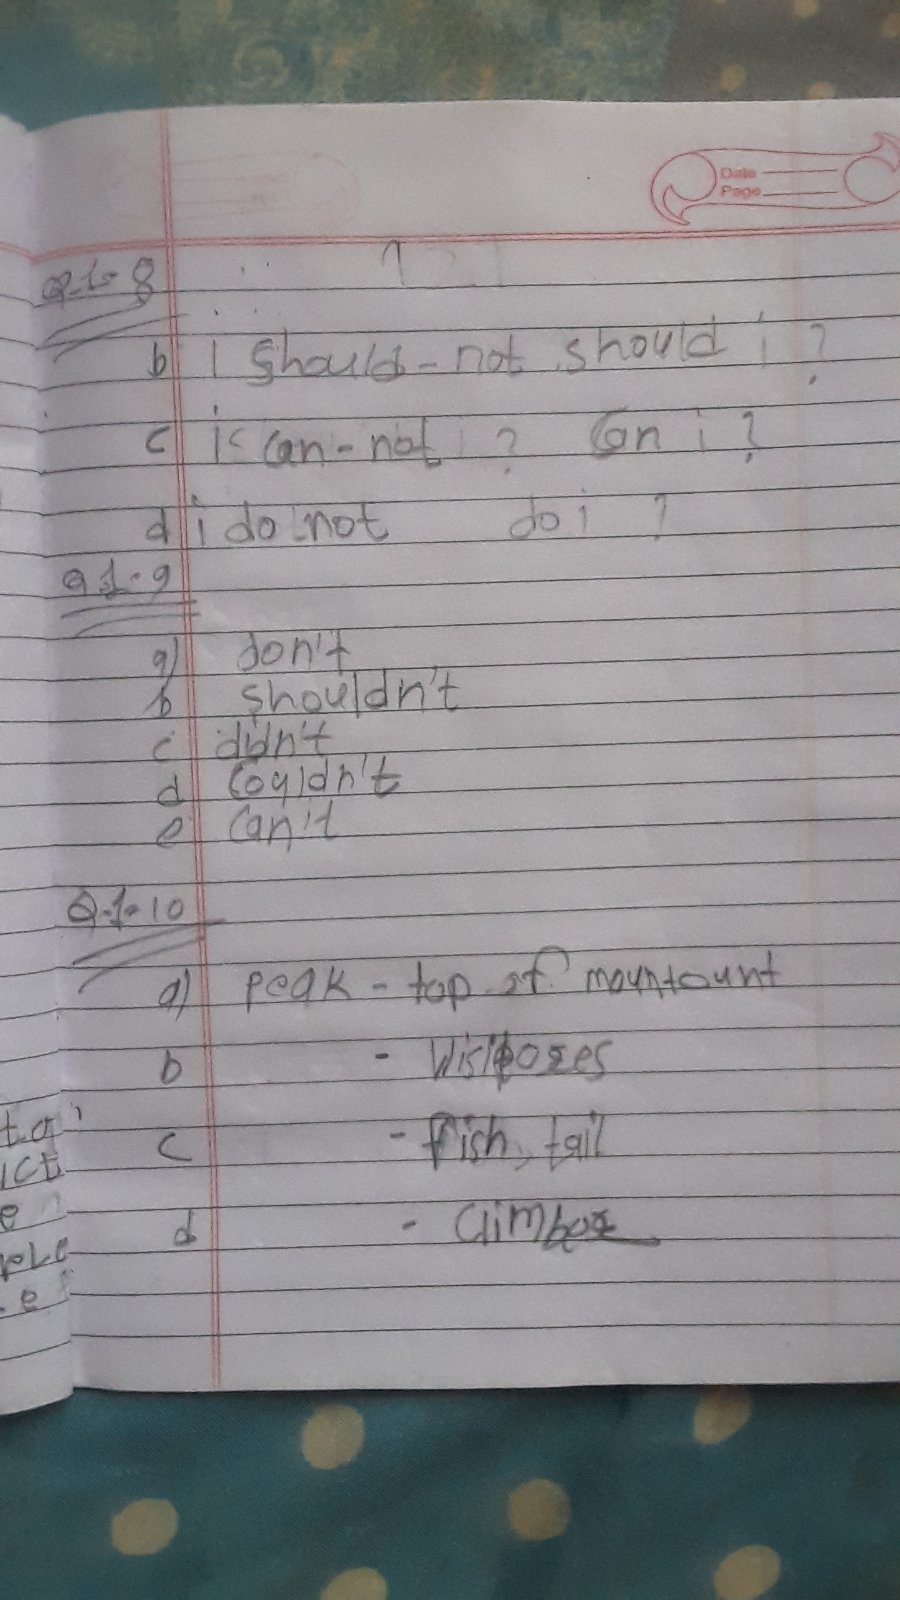 Date
Page
Q.1.8
b i should - not should i ?
c i can - not ? Can i ?
d i do not do i ?
Q 1.9
a) don't
b shouldn't
c didn't
d couldn't
e can't
Q.1.10
a) peak - top of mountount
b -
c - fish, tail
d - Climber
t.a
ict
e
ple
e